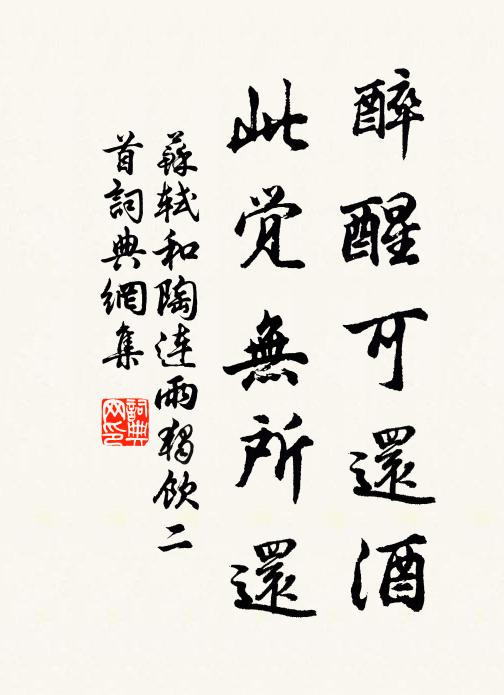 醉醒可還酒
此覚無所還
蘇軾和陶連雨獨飲二
首詞典網集
詞典
网印